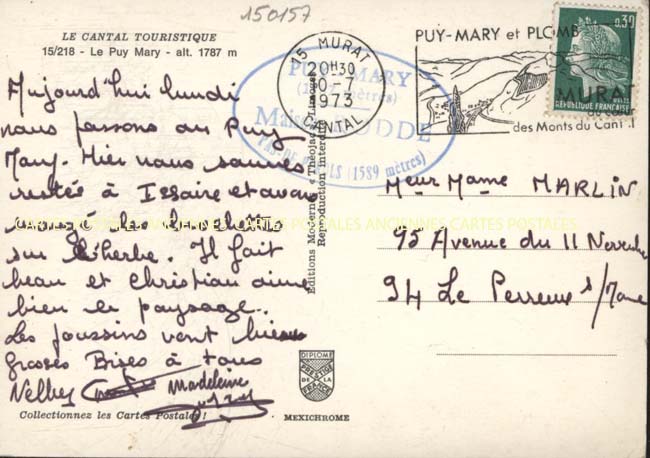 150157
LE CANTAL TOURISTIQUE
15/218 - Le Puy Mary - alt. 1787 m
Aujourd'hui lundi
nous passons au Puy
Mary. Hier nous sommes
restés à Issoire et avons
mangé les
sur l'herbe. Il fait
beau et Christian aime
bien le paysage.
Les poussins vont bien
grosses Bises à tous
Nelly Madeleine
Collectionnez les Cartes Postales !
Editions Modernes « Théojac » Limoges
Reproduction interdite
15 MURAT
20H30
10-7
1973
CANTAL
PUY-MARY
Maison
PAS-DE-PEYROL (1589 mètres)
PUY-MARY et PLOMB
des Monts du Cantal
0,30
MURAT
REPUBLIQUE FRANÇAISE
Meur Mame MARLIN
93 Avenue du 11 Novembre
94 Le Perreux s/Marne
ANCIENNES CARTES POSTALES ANCIENNES CARTES POSTALES
DIPLOME
PRESTIGE
DE LA
FRANCE
MEXICHROME